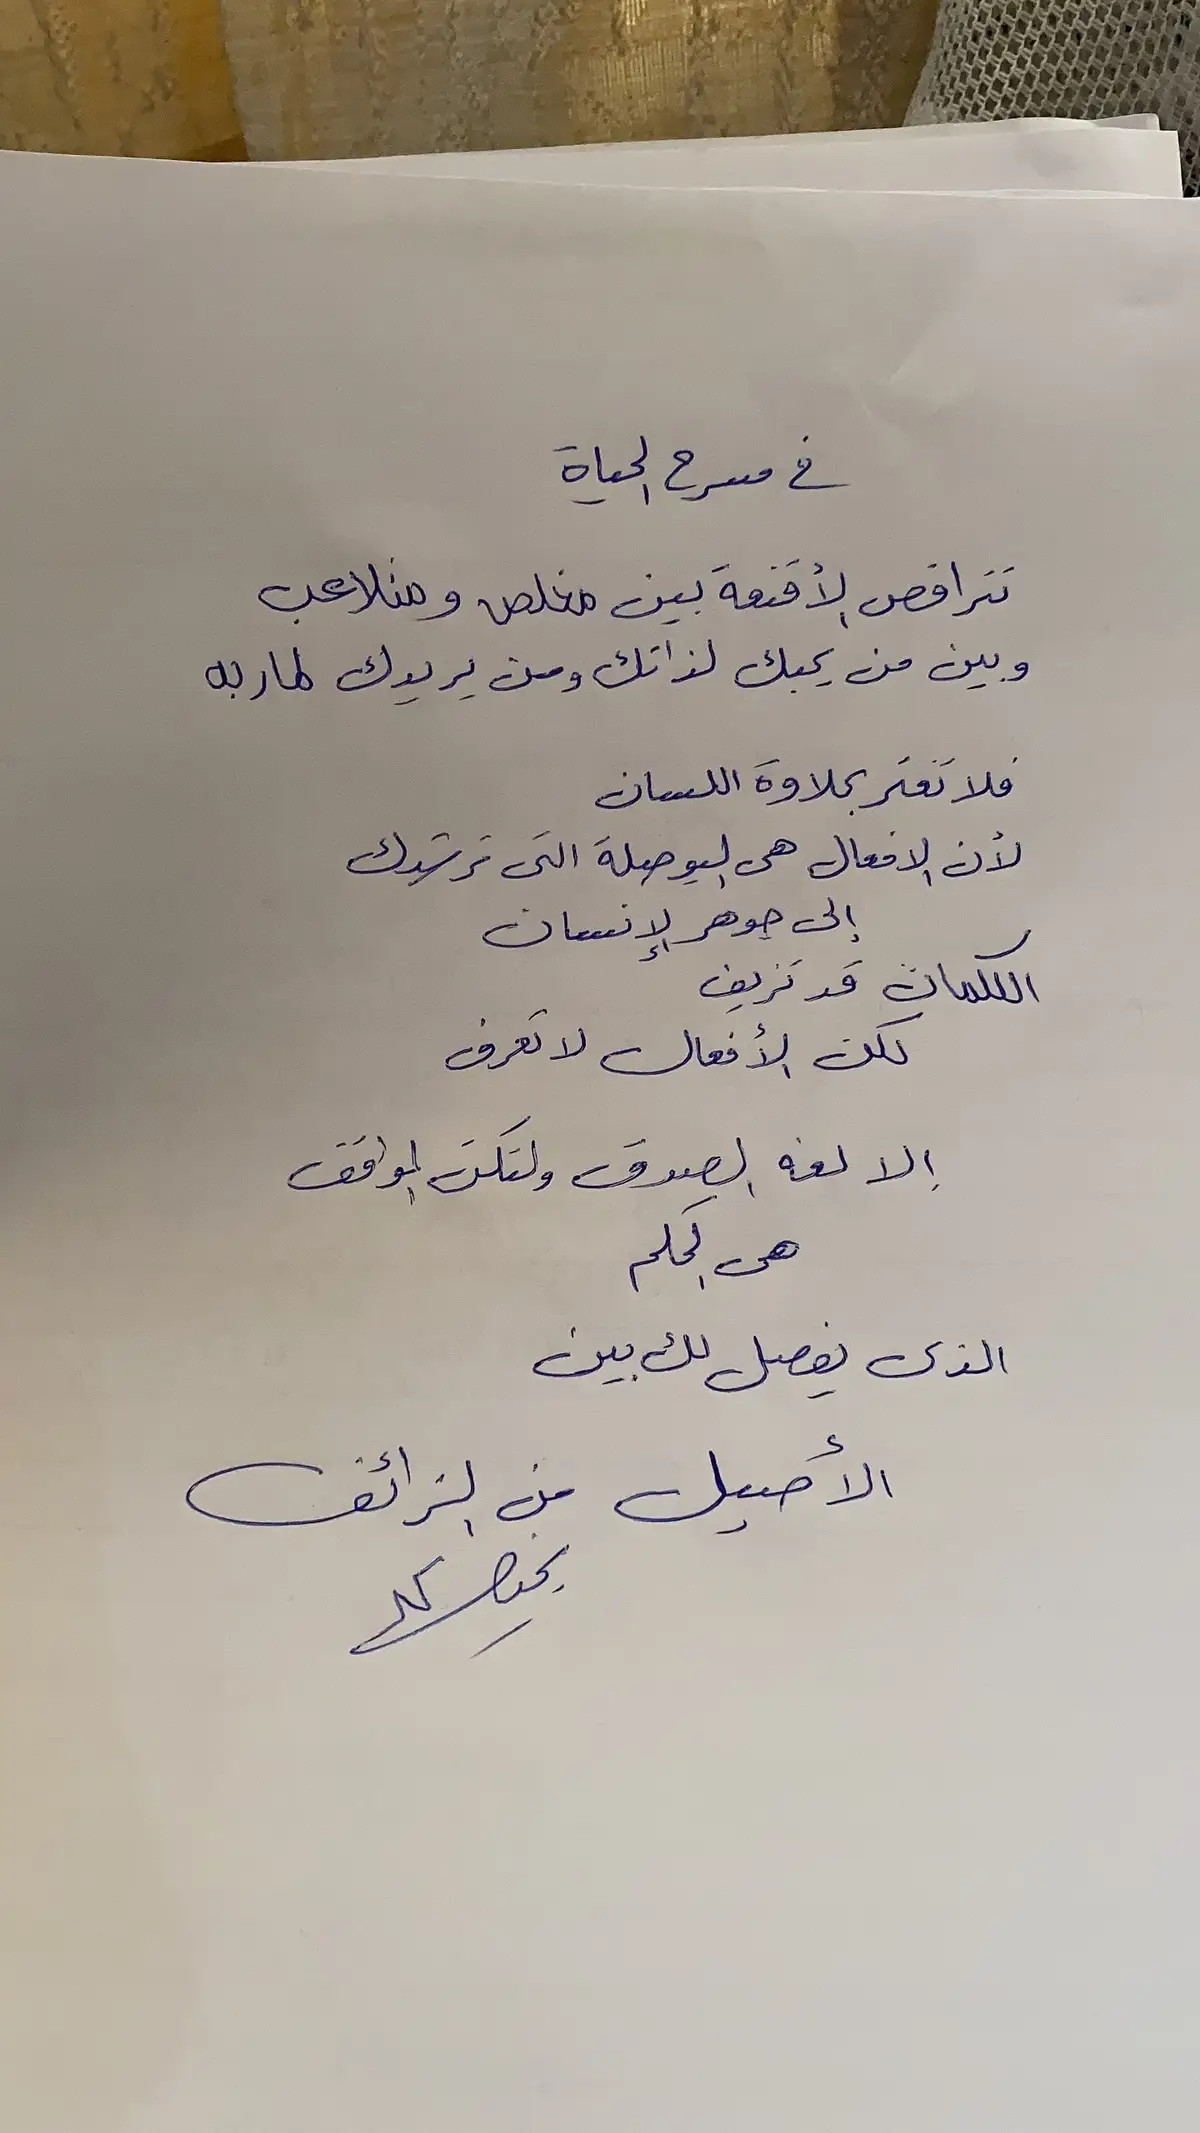 في مسرح الحياة
تتراقص الأقنعة بين مخلص ومتلاعب
وبين من يحبك لذاتك ومن يريدك لمآربه
فلا تغتر بحلاوة اللسان
لأن الافعال هى البوصلة التى ترشدك
إلى جوهر الإنسان
الكلمات قد تزيف
لكن الأفعال لا تعرف
إلا لغه الصدق ولتكن المواقف
هى الحكم
الذى يفصل لك بين
الأصيل من الزائف